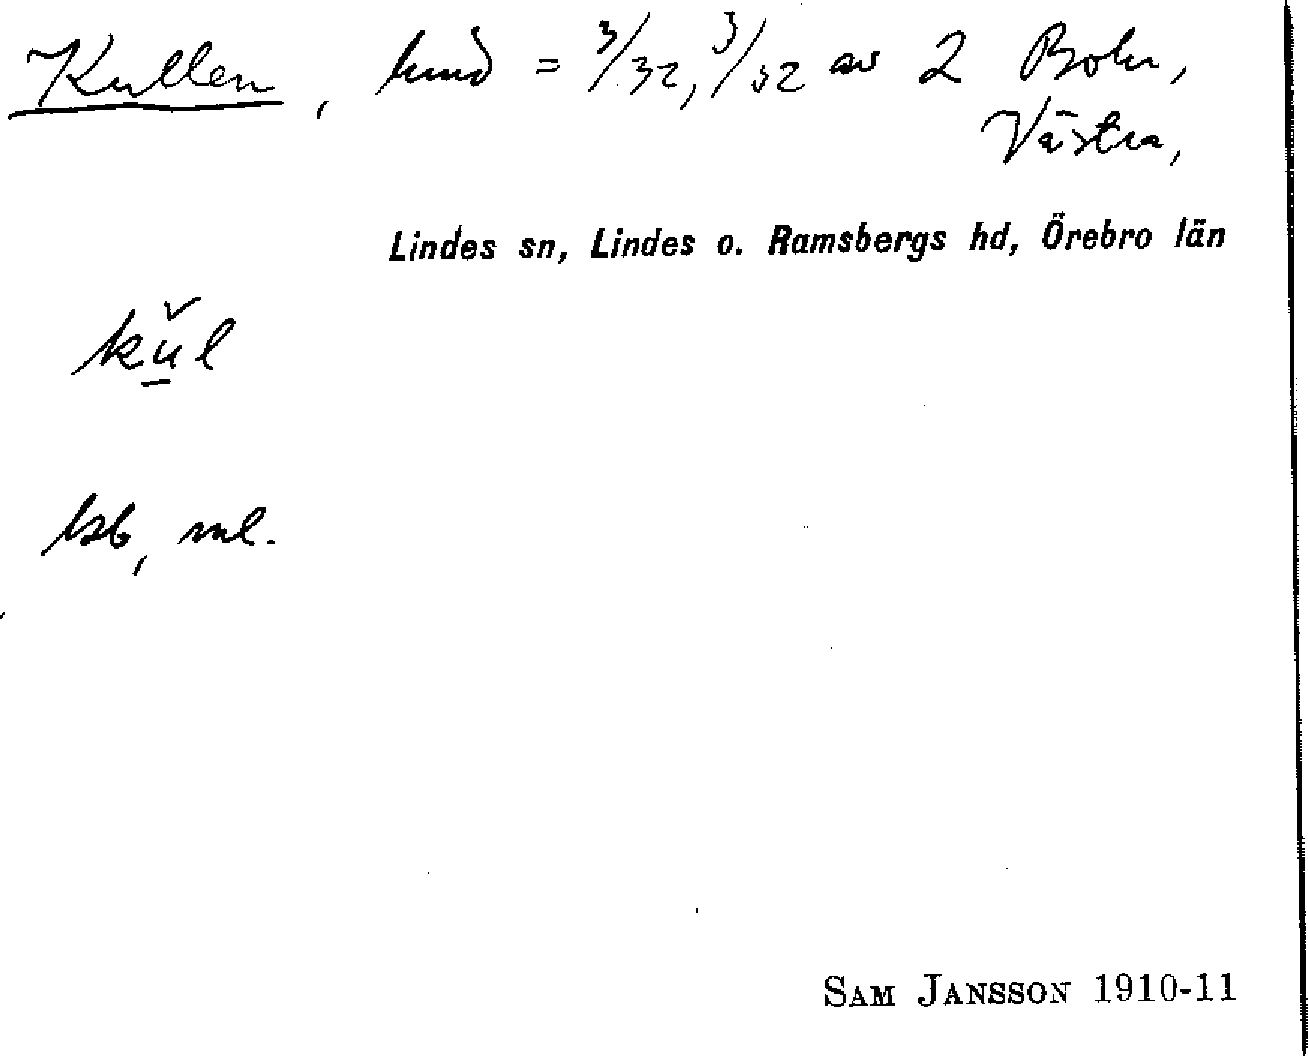 Kullen, hmd = 3/32, 3/32 av 2 Bohr,
Västra,
Lindes sn, Lindes o. Ramsbergs hd, Örebro län
kŭ̱l
bsb, ml.
SAM JANSSON 1910-11